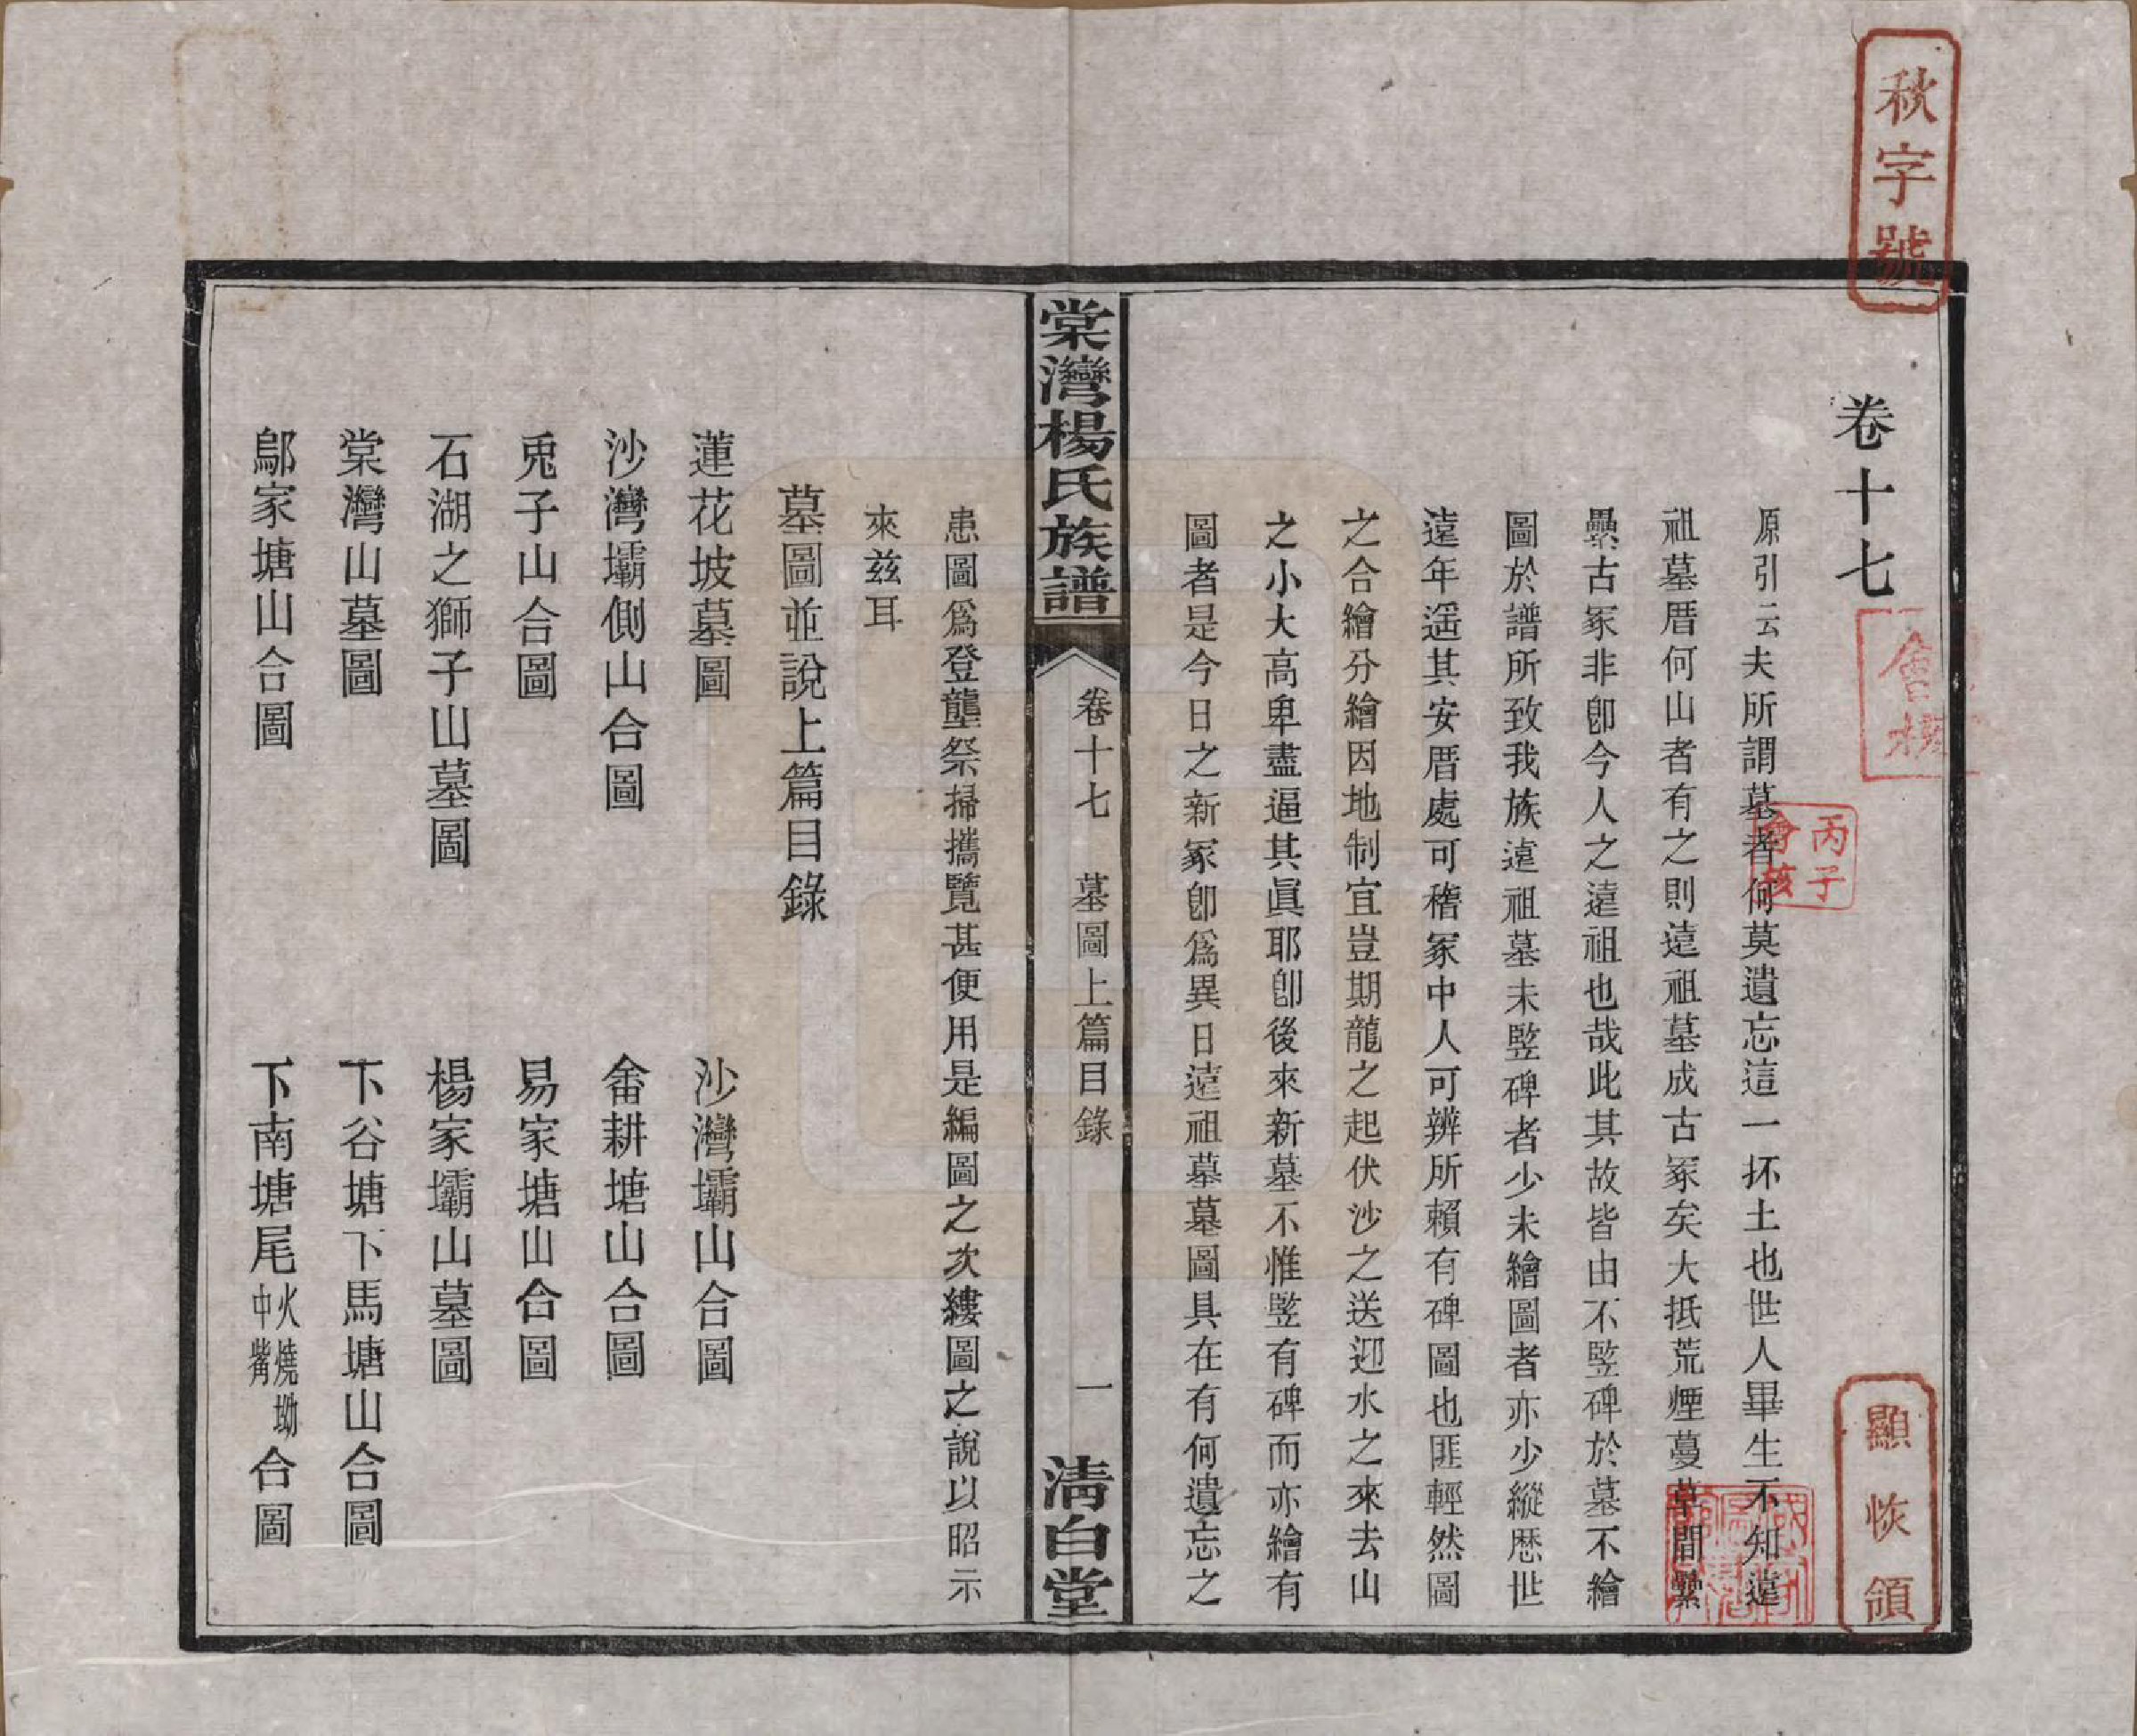 秋字號
卷十七
會核
丙子會核
顯恢領
原引云夫所謂墓者何莫遺忘這一抔土也世人畢生不知遠
祖墓厝何山者有之則遠祖墓成古冢矣大抵荒煙蔓草間纍
纍古冢非卽今人之遠祖也哉此其故皆由不竪碑於墓不繪
圖於譜所致我族遠祖墓未竪碑者少未繪圖者亦少縱歷世
遠年遥其安厝處可稽冢中人可辨所賴有碑圖也匪輕然圖
之合繪分繪因地制宜豈期龍之起伏沙之送迎水之來去山
之小大高卑盡逼其眞耶卽後來新墓不惟竪有碑而亦繪有
圖者是今日之新冢卽爲異日遠祖墓墓圖具在有何遺忘之
棠灣楊氏族譜
卷十七 墓圖上篇目錄 一
淸白堂
患圖爲登壟祭掃攜覽甚便用是編圖之次縷圖之說以昭示
來兹耳
墓圖並說上篇目錄
蓮花坡墓圖 沙灣壩山合圖
沙灣壩側山合圖 畬耕塘山合圖
兎子山合圖 易家塘山合圖
石湖之獅子山墓圖 楊家壩山墓圖
棠灣山墓圖 下谷塘下馬塘山合圖
鄔家塘山合圖 下南塘尾火燒坳中嘴合圖